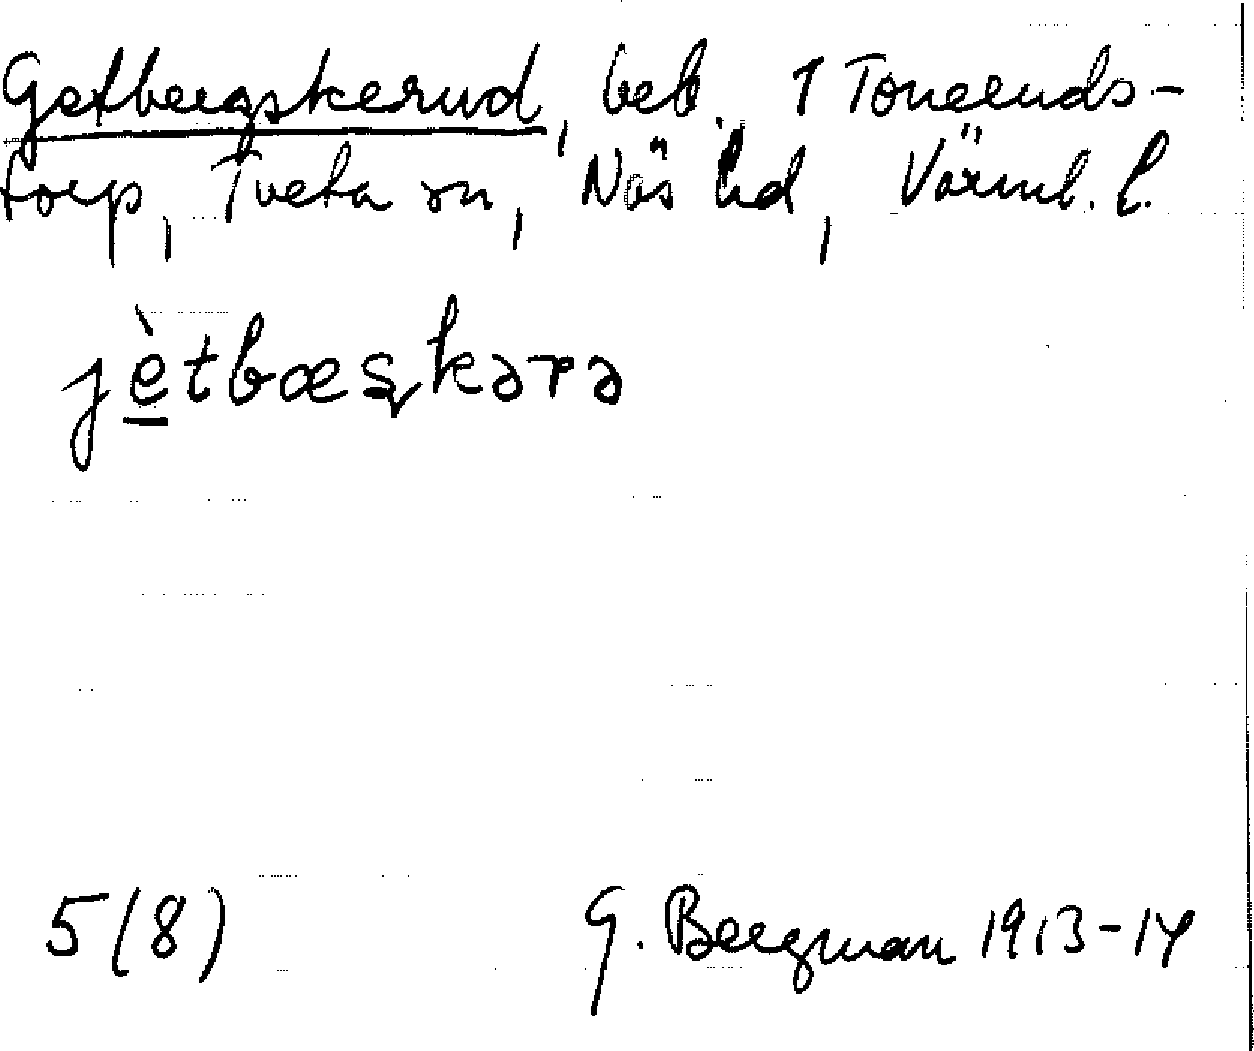 Getbergskerud, beb. i Toneruds-
torp, Tveta sn, Näs hd, Värml. l.
jè̲tbæʂkərə
5(8) G. Bergman 1913-14